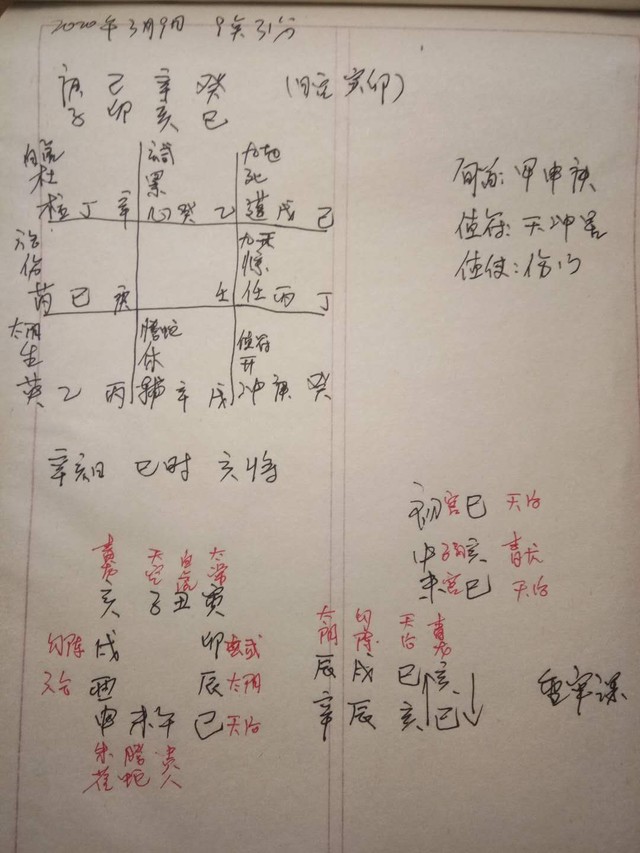 2020年3月9日 9点31分
庚 己 辛 癸 (日空 寅卯)
子 卯 亥 巳
白虎 玄武 九地
杜 景 死
柱 丁 辛 心 癸 乙 蓬 戊 己
六合 九天
伤 惊
芮 己 庚 壬 任 丙 丁
太阴 腾蛇 值符
生 休 开
英 乙 丙 辅 辛 戊 冲 庚 癸
旬首: 甲申庚
值符: 天冲星
值使: 伤门
辛亥日 巳时 亥将
初 官 巳 天后
中 子孙 亥 青龙
末 官 巳 天后
青龙 天空 白虎 太常
亥 子 丑 寅
勾陈 戌 卯 玄武
六合 酉 辰 太阴
申 未 午 巳 天后
朱雀 腾蛇 贵人
太阴 勾陈 天后 青龙
辰 戌 巳 亥
辛 辰 亥 巳
重审课